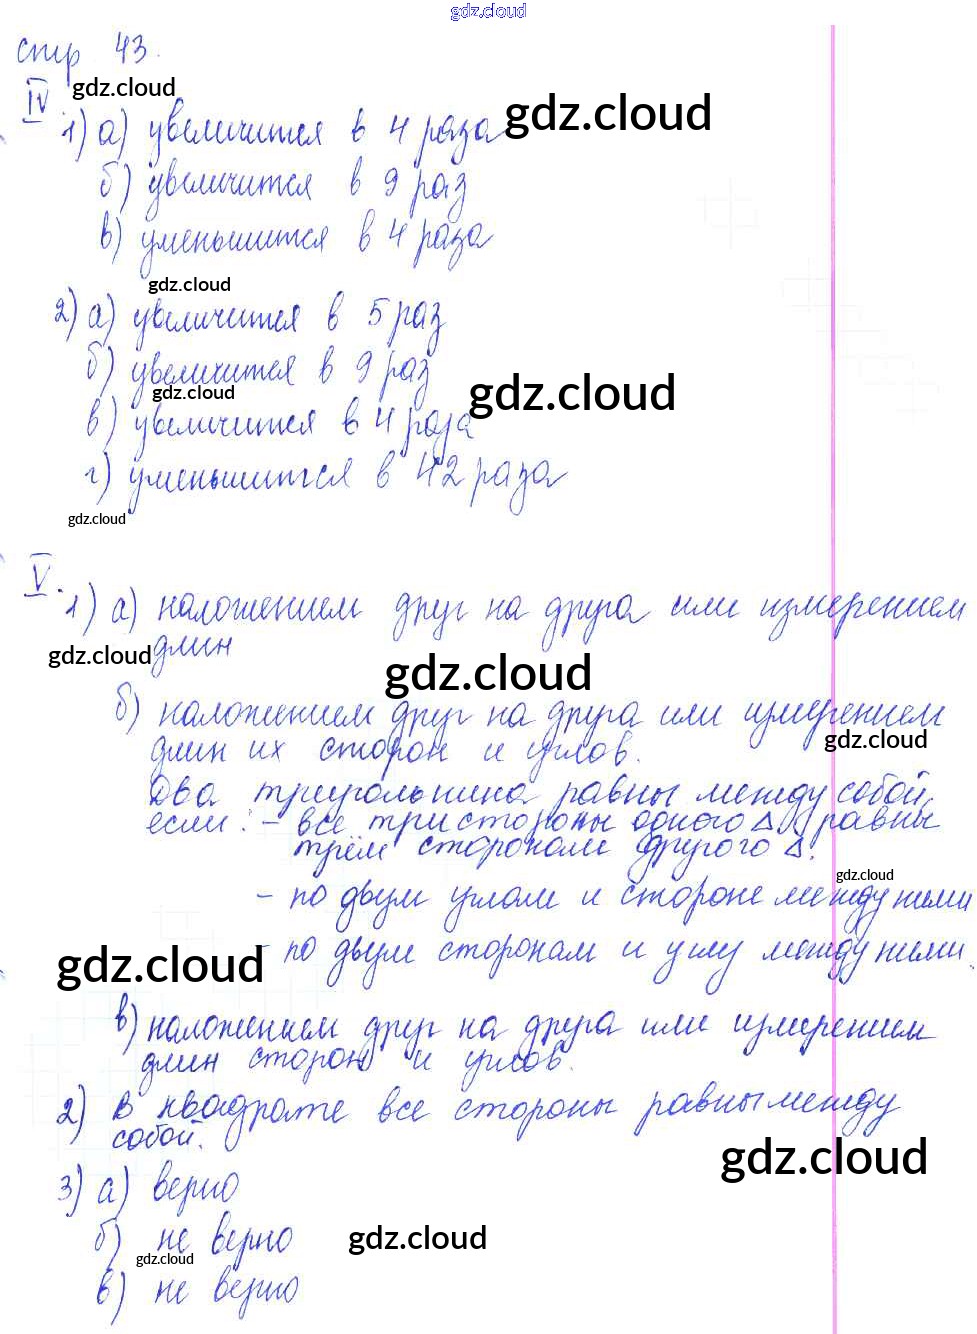 gdz.cloud
стр 43.
IV. gdz.cloud
1) а) увеличится в 4 раза gdz.cloud
б) увеличится в 9 раз
в) уменьшится в 4 раза
gdz.cloud
2) а) увеличится в 5 раз
б) увеличится в 9 раз
gdz.cloud gdz.cloud
в) увеличится в 4 раза
г) уменьшится в 42 раза
gdz.cloud
V. 1) а) наложением друг на друга или измерением
gdz.cloud длин gdz.cloud
б) наложением друг на друга или измерением
длин их сторон и углов. gdz.cloud
Два треугольника равны между собой,
если: - все три стороны одного Δ равны
трём сторонам другого Δ.
gdz.cloud
- по двум углам и стороне между ними
- по двум сторонам и углу между ними.
gdz.cloud
в) наложением друг на друга или измерением
длин сторон и углов.
2) В квадрате все стороны равны между
собой.
gdz.cloud
3) а) верно
б) не верно gdz.cloud
gdz.cloud
в) не верно